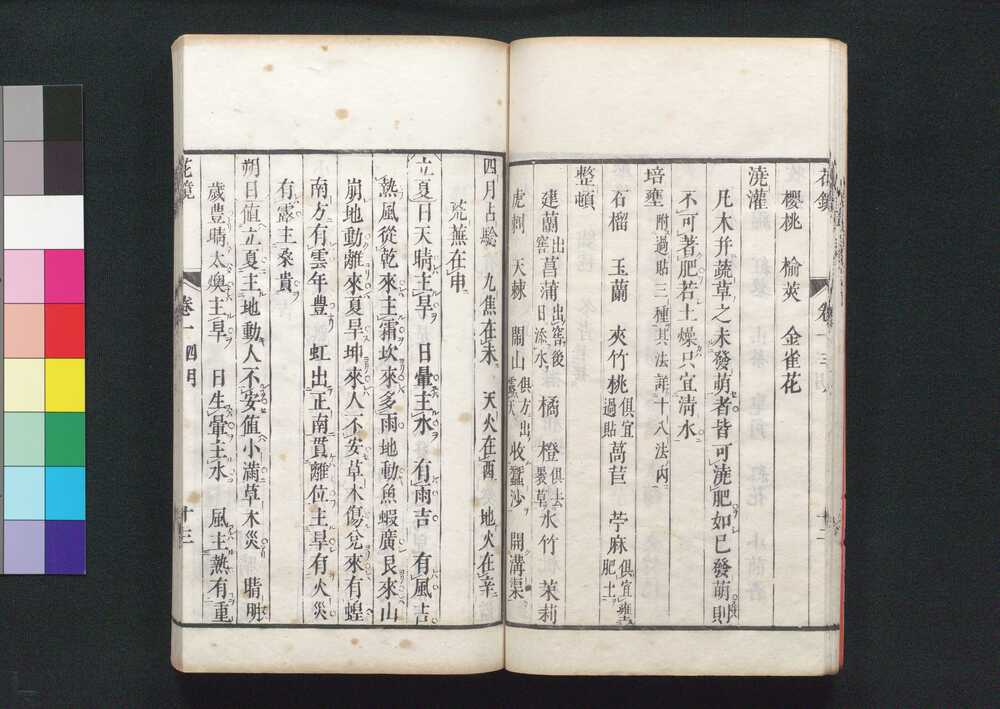 櫻桃 榆莢 金雀花
澆灌
凡木幷蔬草之未發萌者皆可澆肥如已發萌則
不可著肥若土燥只宜清水
培壅附過貼三種其法詳十八法內
石榴 玉蘭 夾竹桃俱宜過貼 萵苣 苧麻俱宜壅肥土
整頓
建蘭出窖 菖蒲出窖後日添水 橘 橙俱去裹草 水竹 茉莉
虎刺 天棘 闌山 俱方出 收蠶沙 開溝渠
四月占驗 九焦在未 天火在酉 地火在辛
荒蕪在申
立夏日天晴主旱 日暈主水 有雨吉 有風吉
熱風從乾來主霜坎來多雨地動魚蝦廣艮來山
崩地動離來夏旱坤來人不安草木傷兌來有蝗
南方有雲年豐 虹出正南貫離位主旱有火災
有霧主桑貴
朔日值立夏主地動人不安值小滿草木災 晴明
歲豐晴太燠主旱 日生暈主水 風主熱有重
花鏡 卷一 四月 十三